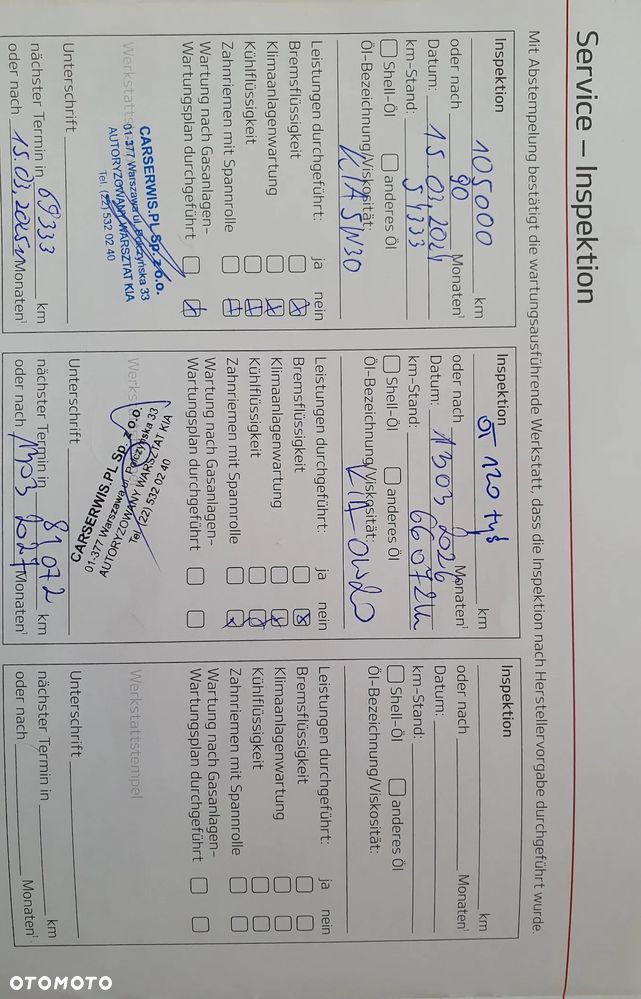 Service – Inspektion
Mit Abstempelung bestätigt die wartungsausführende Werkstatt, dass die Inspektion nach Herstellervorgabe durchgeführt wurde.
Inspektion
105000 km
oder nach 90 Monaten¹
Datum: 15.03.2024
km-Stand: 54333
Shell-Öl anderes Öl
Öl-Bezeichnung/Viskosität:
KIA 5W30
Leistungen durchgeführt: ja nein
Bremsflüssigkeit
Klimaanlagenwartung
Kühlflüssigkeit
Zahnriemen mit Spannrolle
Wartung nach Gasanlagen-
Wartungsplan durchgeführt
Werkstatts
CARSERWIS.PL Sp. z o.o.
01-377 Warszawa ul. Połczyńska 33
AUTORYZOWANY WARSZTAT KIA
Tel. (22) 532 02 40
Unterschrift
nächster Termin in 69333 km
oder nach 15.03.2025 Monaten¹
Inspektion
120 tyś km
oder nach Monaten¹
Datum: 1303 2026
km-Stand: 66072
Shell-Öl anderes Öl
Öl-Bezeichnung/Viskosität:
KIA 0W20
Leistungen durchgeführt: ja nein
Bremsflüssigkeit
Klimaanlagenwartung
Kühlflüssigkeit
Zahnriemen mit Spannrolle
Wartung nach Gasanlagen-
Wartungsplan durchgeführt
Werks
CARSERWIS.PL Sp. z o.o.
01-377 Warszawa ul. Połczyńska 33
AUTORYZOWANY WARSZTAT KIA
Tel. (22) 532 02 40
Unterschrift
nächster Termin in 81072 km
oder nach 1303 2027 Monaten¹
Inspektion
km
oder nach Monaten¹
Datum:
km-Stand:
Shell-Öl anderes Öl
Öl-Bezeichnung/Viskosität:
Leistungen durchgeführt: ja nein
Bremsflüssigkeit
Klimaanlagenwartung
Kühlflüssigkeit
Zahnriemen mit Spannrolle
Wartung nach Gasanlagen-
Wartungsplan durchgeführt
Werkstattstempel
Unterschrift
nächster Termin in km
oder nach Monaten¹
OTOMOTO